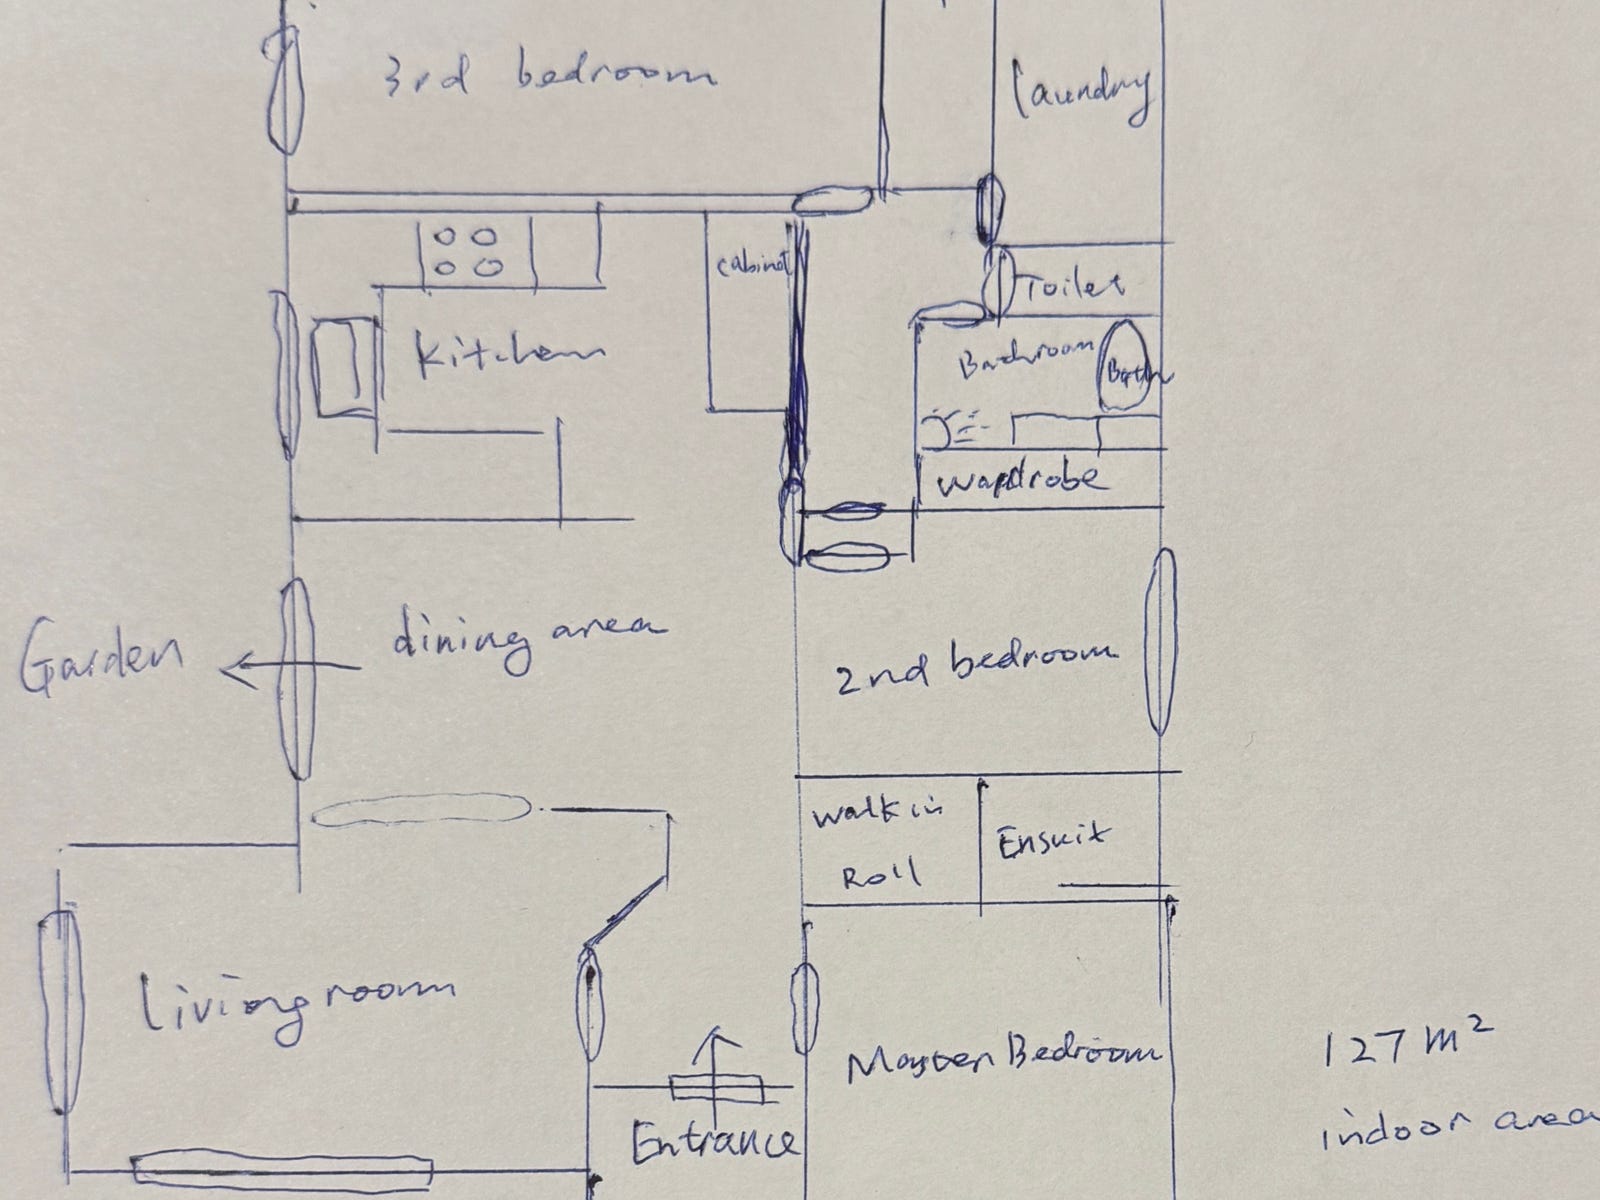 3rd bedroom
laundry
cabinet
Toilet
Kitchen
Bathroom
Bath
Wardrobe
Garden
dining area
2nd bedroom
Walk in
Roll
Ensuit
living room
Master Bedroom
Entrance
127 m²
indoor area